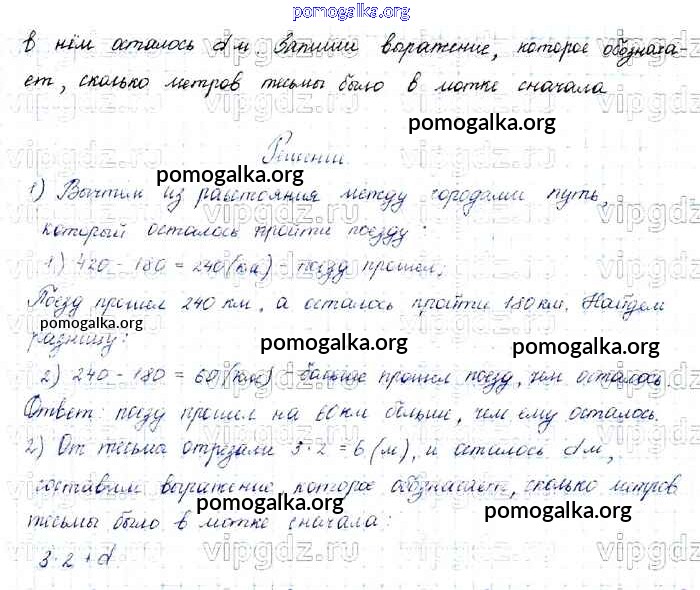 pomogalka.org
в нём осталось d м. Запиши выражение, которое обознача-
ет, сколько метров тесьмы было в мотке сначала
pomogalka.org
Решение.
pomogalka.org
1) Вычтем из расстояния между городами путь,
который осталось пройти поезду:
1) 420 - 180 = 240 (км) - поезд прошел;
Поезд прошел 240 км, а осталось пройти 180 км. Найдем
pomogalka.org
разницу:
pomogalka.org
pomogalka.org
2) 240 - 180 = 60 (км) - больше прошел поезд, чем осталось.
Ответ: поезд прошел на 60 км больше, чем ему осталось.
2) От тесьма отрезали 3·2 = 6 (м), и осталось d м,
составим выражение которое обозначает, сколько метров
pomogalka.org
pomogalka.org
тесьмы было в мотке сначала:
3·2+d